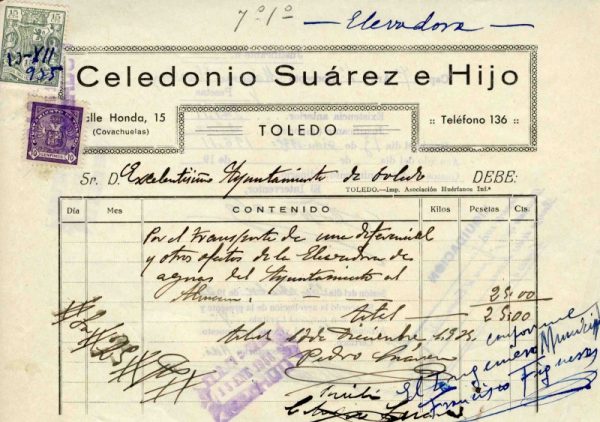 7º 1º — Elevadora —
15
13-XII
935
Celedonio Suárez e Hijo
10
CENTIMOS
Calle Honda, 15
(Covachuelas)
TOLEDO
:: Teléfono 136 ::
Sr. D. Excelentisimo Ayuntamiento de Toledo DEBE:
TOLEDO.—Imp. Asociación Huérfanos Inf.ª
Día Mes CONTENIDO Kilos Pesetas Cts.
Por el transporte de una diferencial
y otros efectos de la Elevadora de
aguas del Ayuntamiento al
Almacen — 25.00
total — 25.00
Toledo 12 Diciembre 1935
Pedro Suarez
Recibí
conforme
El Ingeniero Municipal
Francisco Figueras